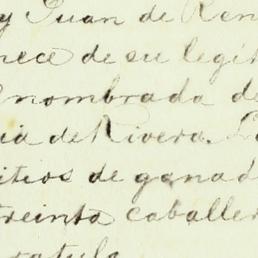 y Juan de Ren
nece de su legít
nombrada de
ia de Rivera. L
itios de ganad
treinta caballer